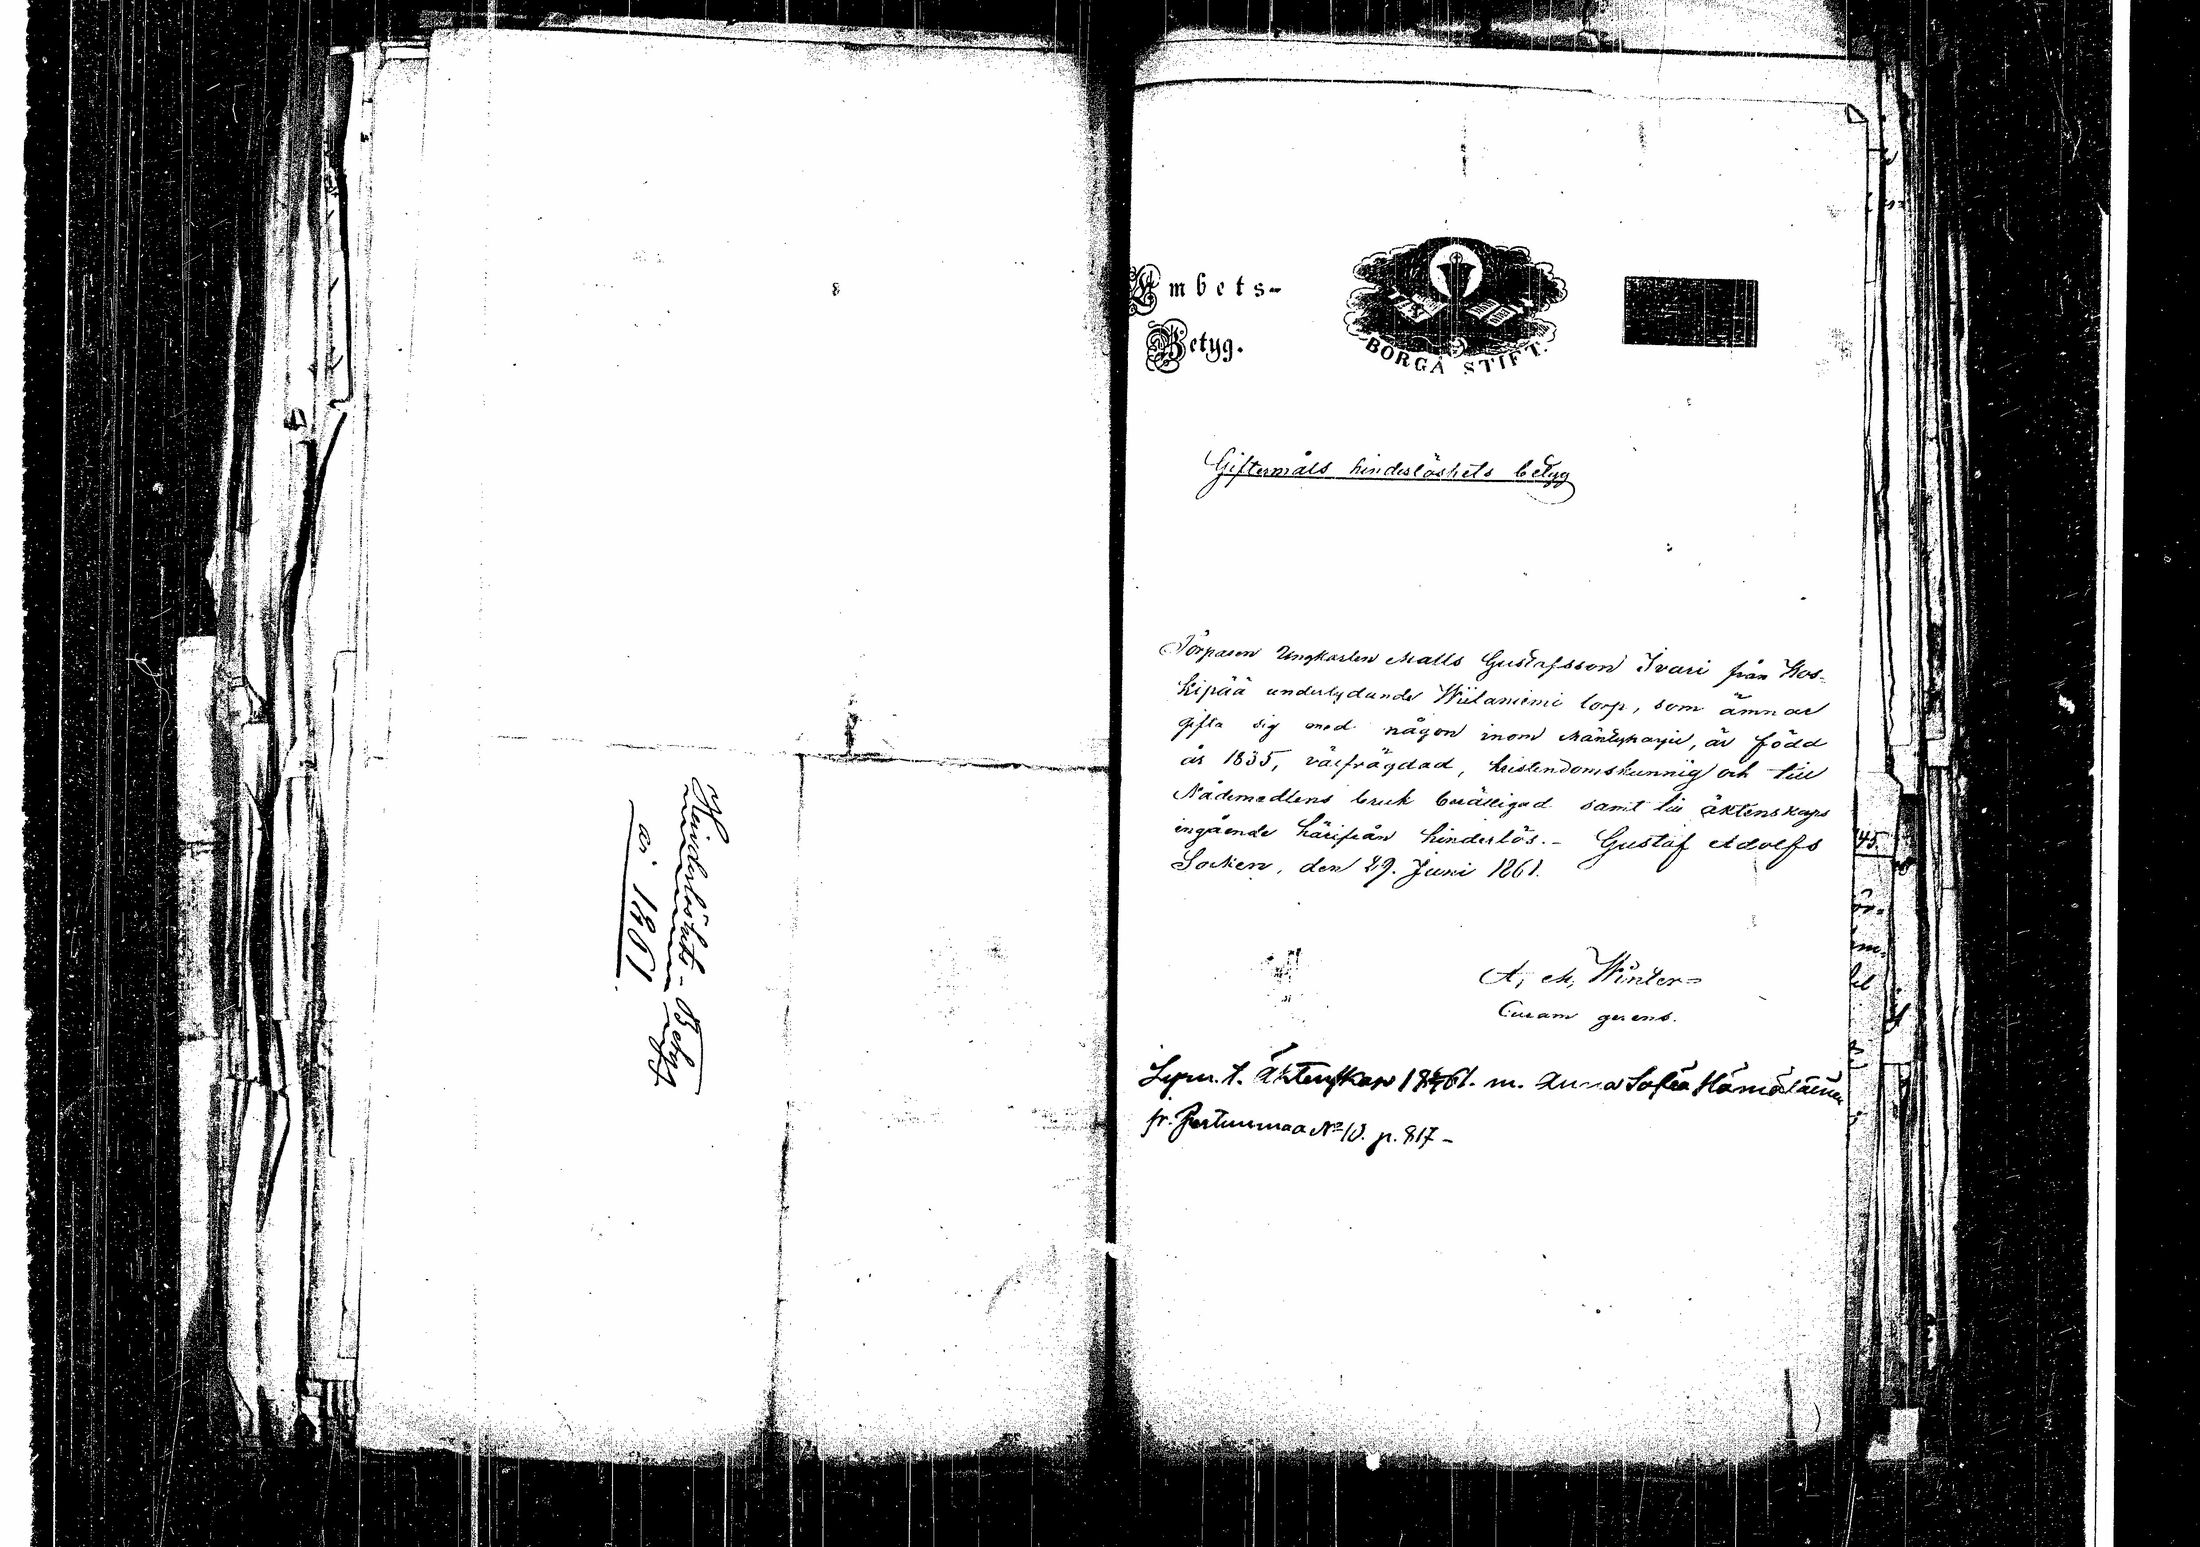 Hinderlöshets-Betyg
år 1861.
Embets-
Betyg.
BORGÅ STIFT.
Giftermåls hinderlöshets betyg
Torparen Ungkarlen Matts Gustafsson Ivari från Kos-
kipää underlydande Wiitaniemi torp, som ämnar
gifta sig med någon inom Mäntyharju, är född
år 1835, välfrägdad, kristendomskunnig och till
Nådemedlens bruk berättigad samt till äktenskaps
ingående härifrån hinderlös. - Gustaf Adolfs
Socken, den 29. Juni 1861.
A, M, Winter
Curam gerens.
Lysn. t. Äktenskap 1861. m. Anna Sofia Hämäläinen
fr. Pertunmaa No 10. p. 817 -
45.